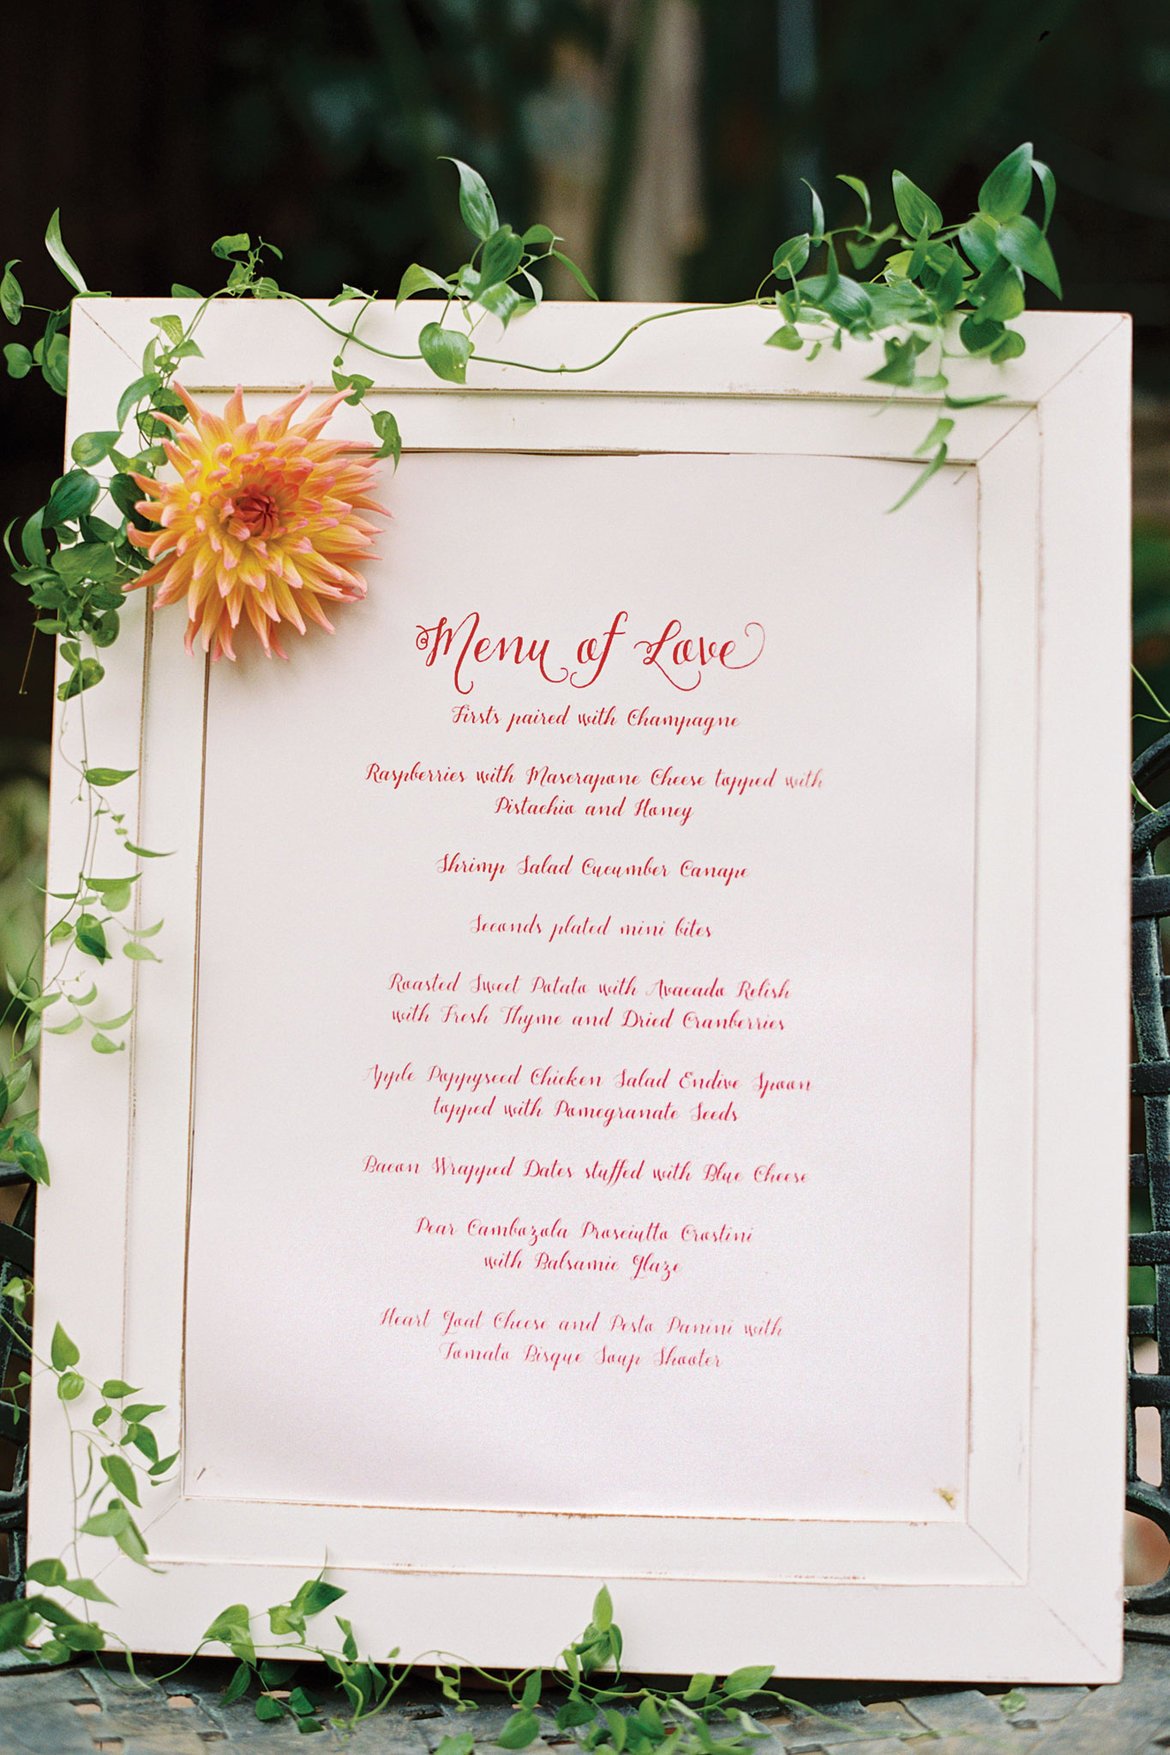 Menu of Love
Firsts paired with Champagne
Raspberries with Mascrapone Cheese topped with
Pistachio and Honey
Shrimp Salad Cucumber Canape
Seconds plated mini bites
Roasted Sweet Potato with Avacado Relish
with Fresh Thyme and Dried Cranberries
Apple Poppyseed Chicken Salad Endive Spoon
topped with Pomegranate Seeds
Bacon Wrapped Dates stuffed with Blue Cheese
Pear Cambozola Prosciutto Crostini
with Balsamic Glaze
Heart Goat Cheese and Pesto Panini with
Tomato Bisque Soup Shooter